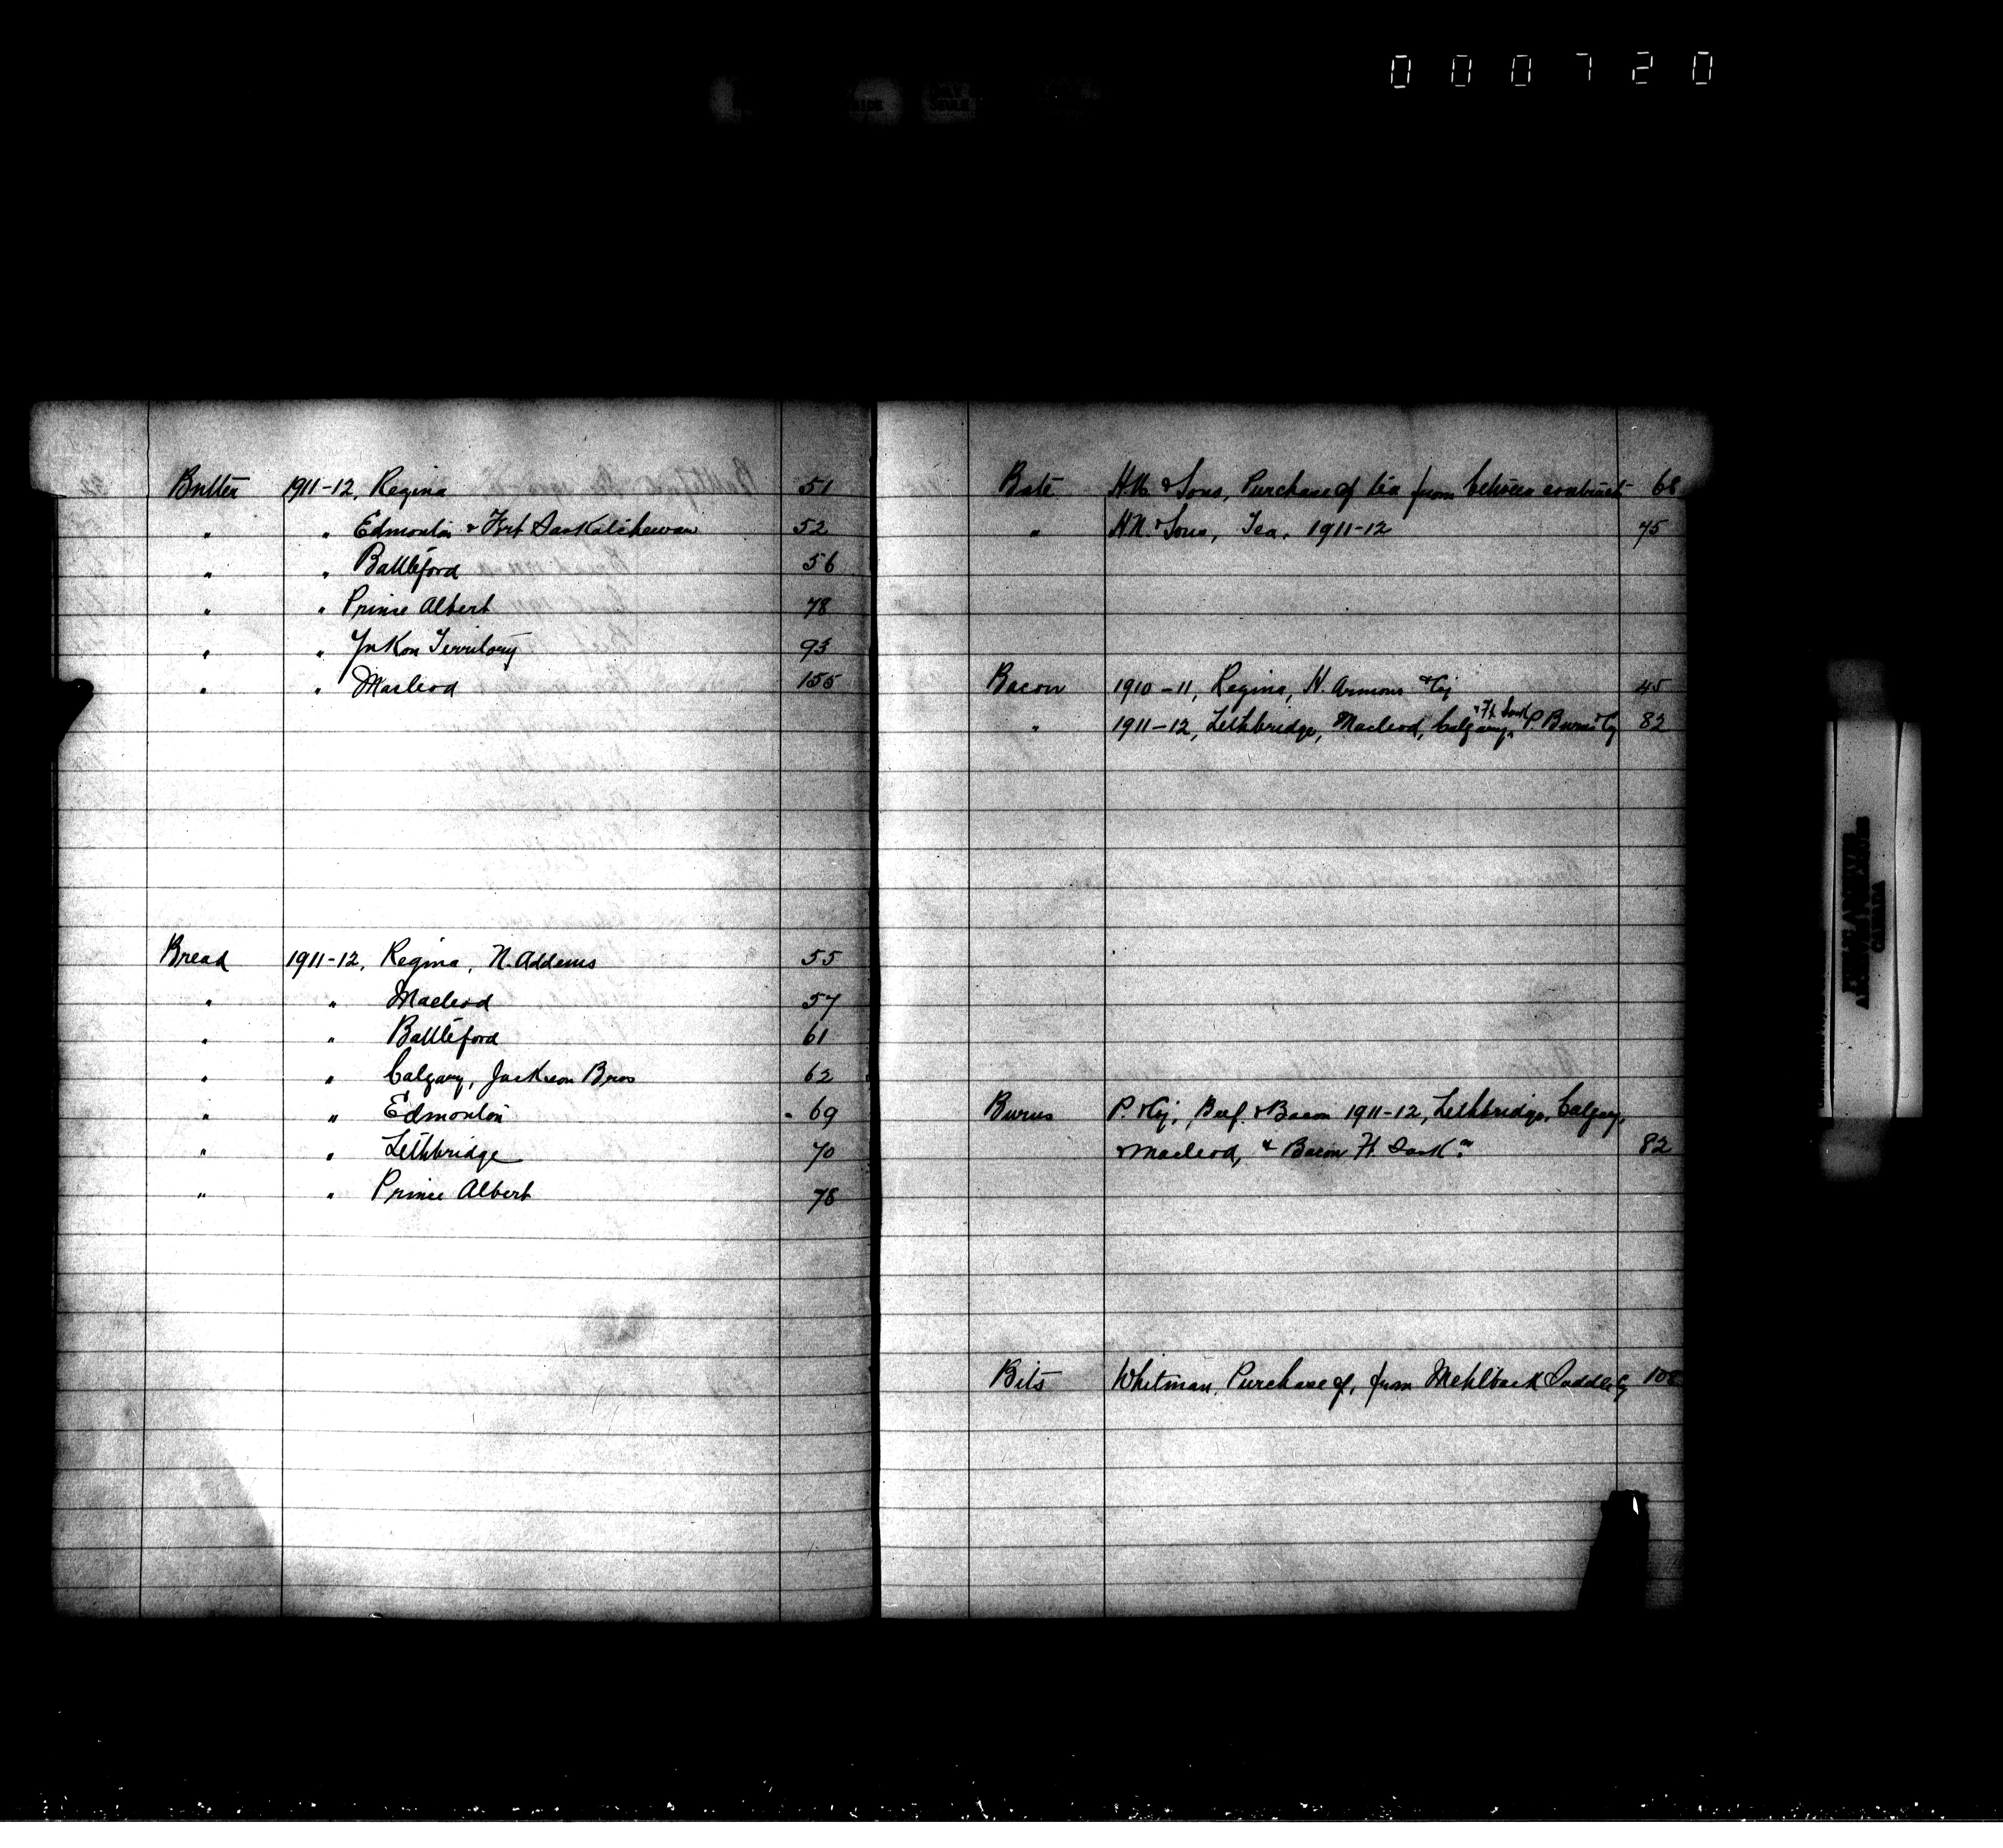 000720
Butter 1911-12, Regina 51
" " Edmonton & Fort Saskatchewan 52
" " Battleford 56
" " Prince Albert 78
" " Yukon Territory 93
" " Macleod 155
Bread 1911-12, Regina, N. Addems 55
" " Macleod 57
" " Battleford 61
" " Calgary, Jackson Bros 62
" " Edmonton 69
" " Lethbridge 70
" " Prince Albert 78
Bate H.N. & Sons, Purchase of tea from between contracts 68
" H.N. & Sons, Tea, 1911-12 75
Bacon 1910-11, Regina, H. Armour & Co 45
" 1911-12, Lethbridge, Macleod, Calgary, & Ft Sask P. Burns & Co 82
Burns P. & Co, Beef & Bacon 1911-12, Lethbridge, Calgary,
& Macleod, & Bacon Ft. Sask.n 82
Bits Whitman, Purchase of, from Mehlback Saddle Co 108